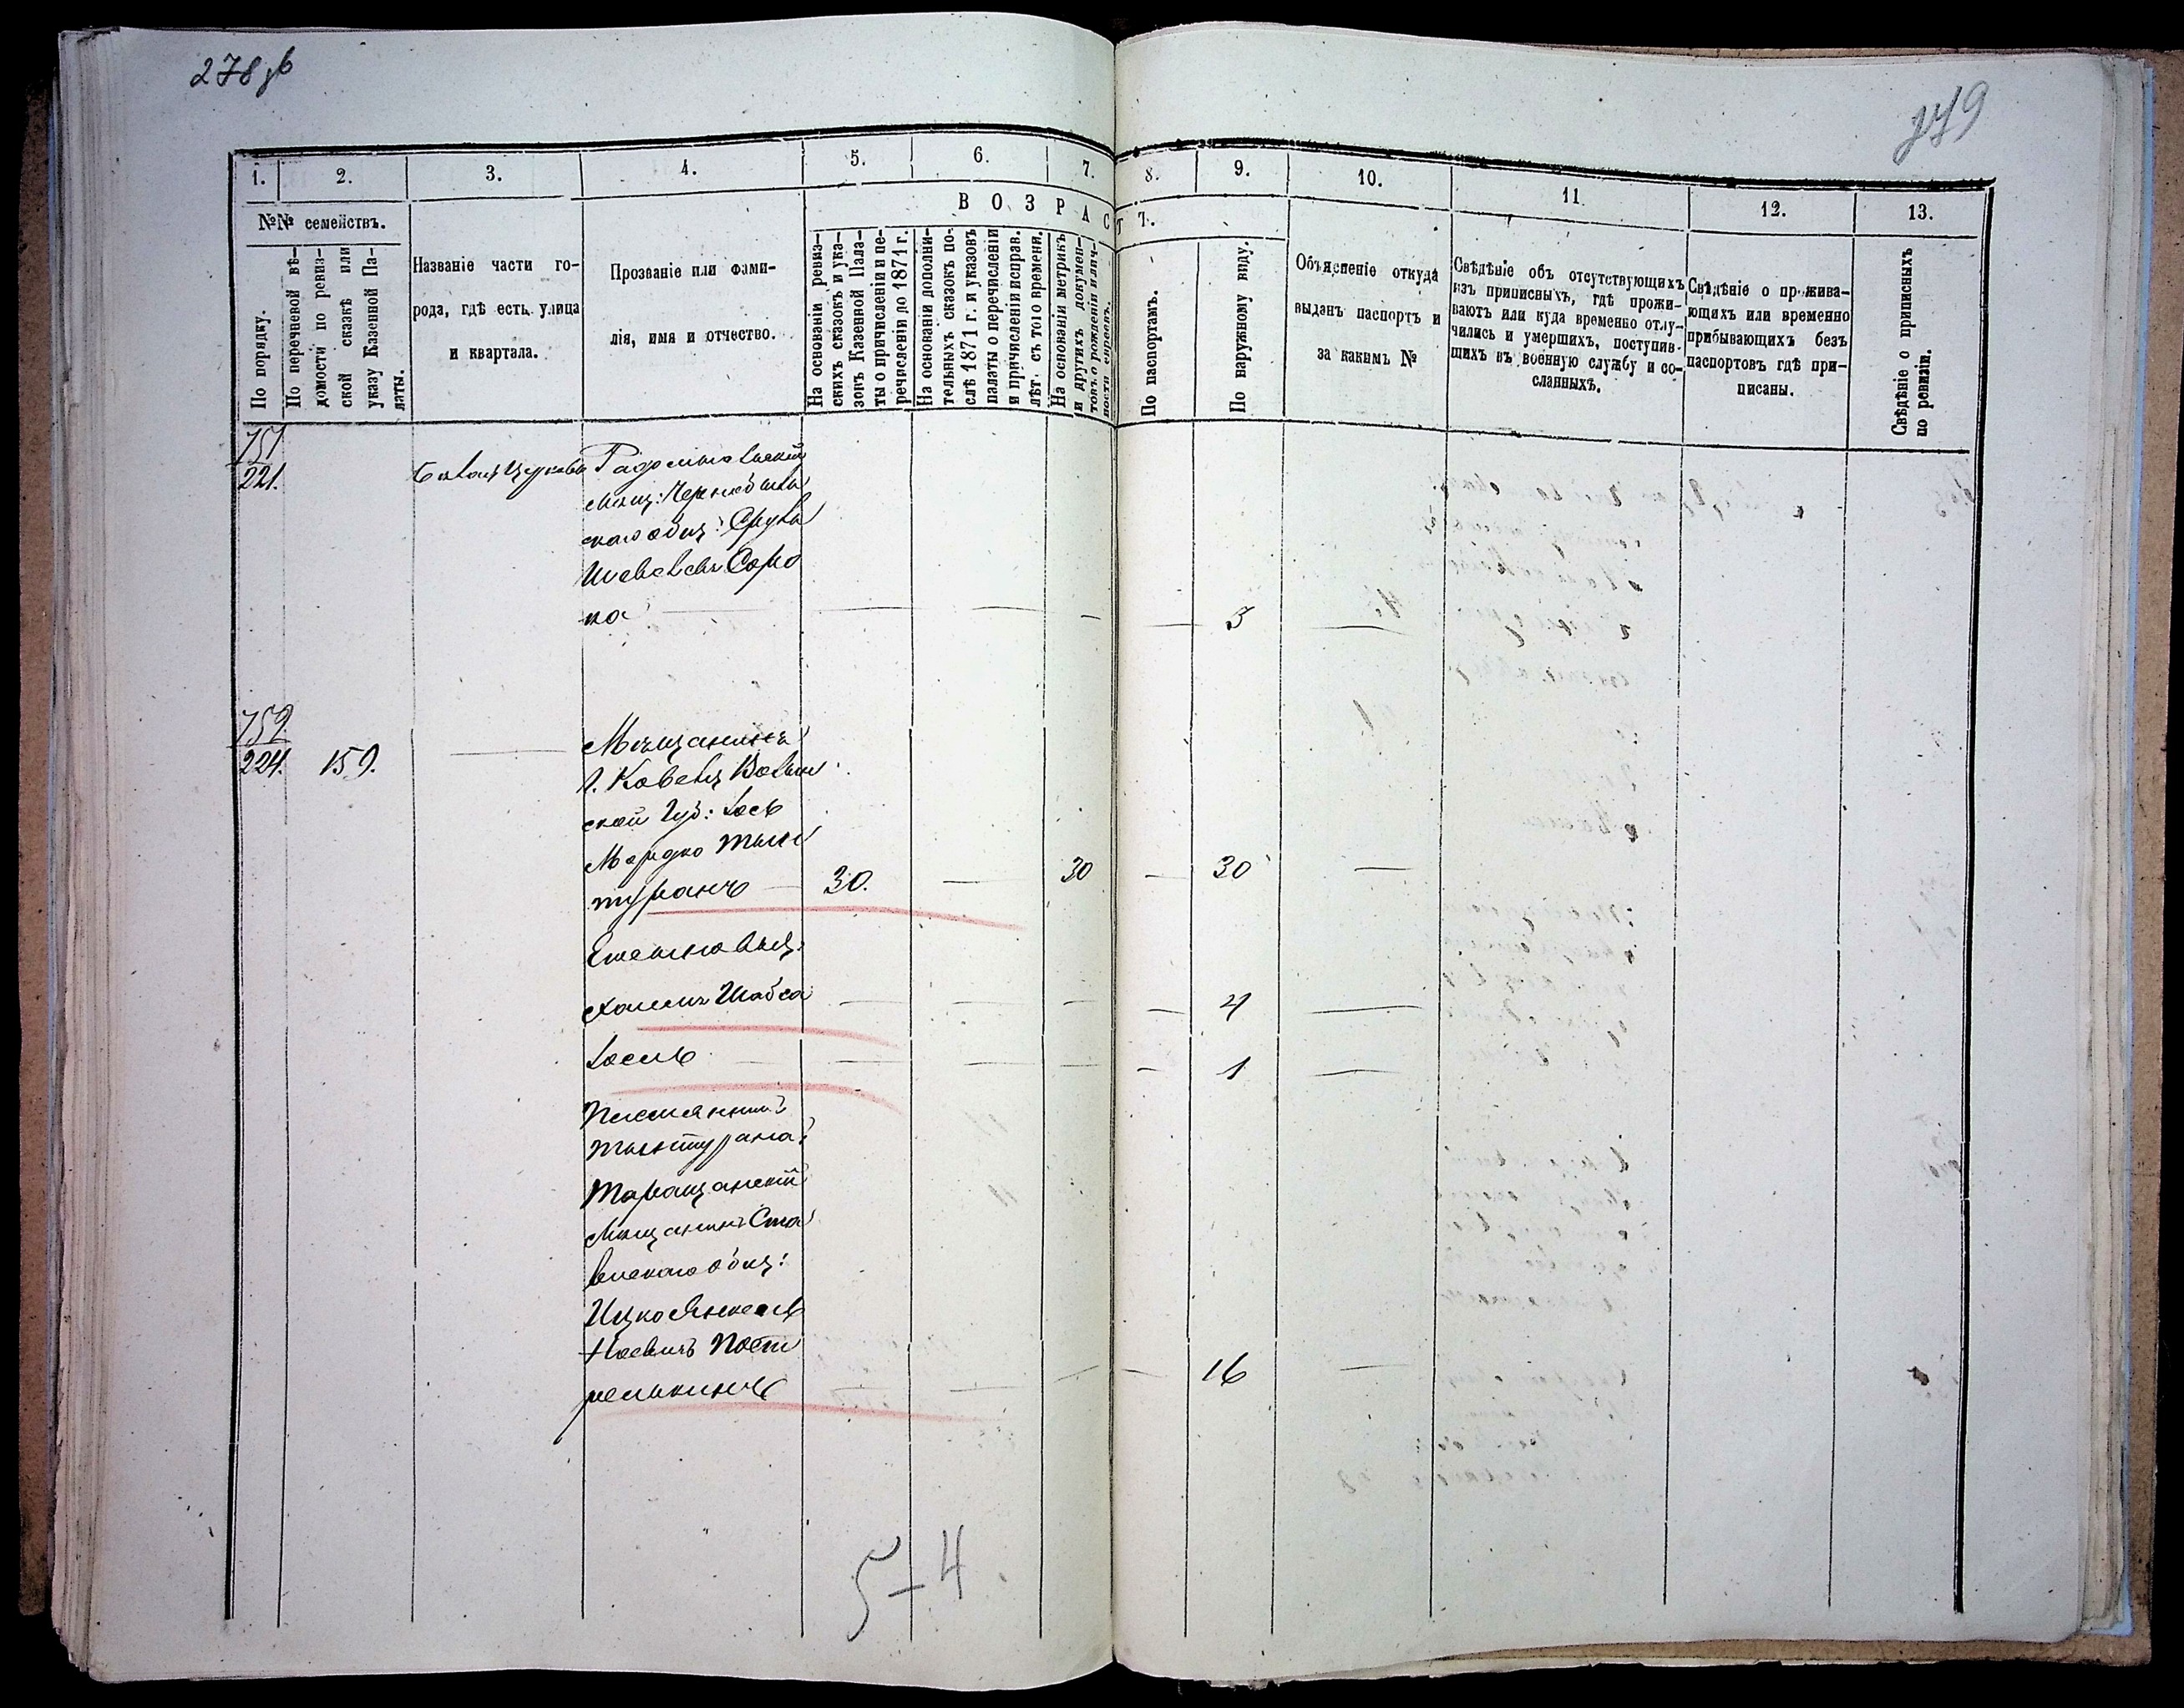 278 об
279
1. 2. 3. 4. 5. 6. 7. 8. 9. 10. 11. 12. 13.
№№ семействъ.
По порядку.
По перечневой вѣ-
домости по ревиз-
ской сказкѣ или
указу Казенной Па-
латы.
Названіе части го-
рода, гдѣ есть улица
и квартала.
Прозваніе или фами-
лія, имя и отчество.
ВОЗРАСТ
Ъ.
На основаніи ревиз-
скихъ сказокъ и ука-
зовъ Казенной Пала-
ты о причисленіи и пе-
речисленіи до 1871 г.
На основаніи дополни-
тельныхъ сказокъ по-
слѣ 1871 г. и указовъ
палаты о перечисленіи
и причисленіи исправ.
лѣт. съ того времени.
На основаніи метрикъ
и другихъ докумен-
товъ о рожденіи и лич-
ности евреевъ.
По паспортамъ.
По наружному виду.
Объясненіе откуда
выданъ паспортъ и
за какимъ №
Свѣдѣніе объ отсутствующихъ
изъ приписныхъ, гдѣ прожи-
ваютъ или куда временно отлу-
чились и умершихъ, поступив-
шихъ въ военную службу и со-
сланныхъ.
Свѣдѣніе о прожива-
ющихъ или временно
прибывающихъ безъ
паспортовъ гдѣ при-
писаны.
Свѣдѣніе о приписныхъ
по ревизіи.
751
221.
Бѣлая Церковь
Радомысльскій
мѣщ: Чернобыль
скаго общ: Сруль
Шевелевъ Соро
ка — — — — — 3 —
752
224. 159. —
Мѣщанинъ
г. Ковеля Волын
ской Губ: Іось
Мордко Тын
туранъ — 30. — 30 — 30 —
Хаимъ Шабса — — — — 4 —
Іосиль — — — — 1 —
Тынтурана
Таращанскій
Мѣщанинъ Ста
вискаго общ:
Ицко Янкель
Пост
релькинъ — — — — 16 —
5-4